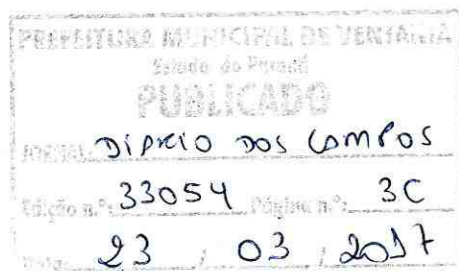 PREFEITURA MUNICIPAL DE VENTANIA
Estado do Paraná
PUBLICADO
JORNAL: DIÁRIO DOS CAMPOS
Edição n.º: 33054 Página n.º: 3C
Data: 23 / 03 / 2017